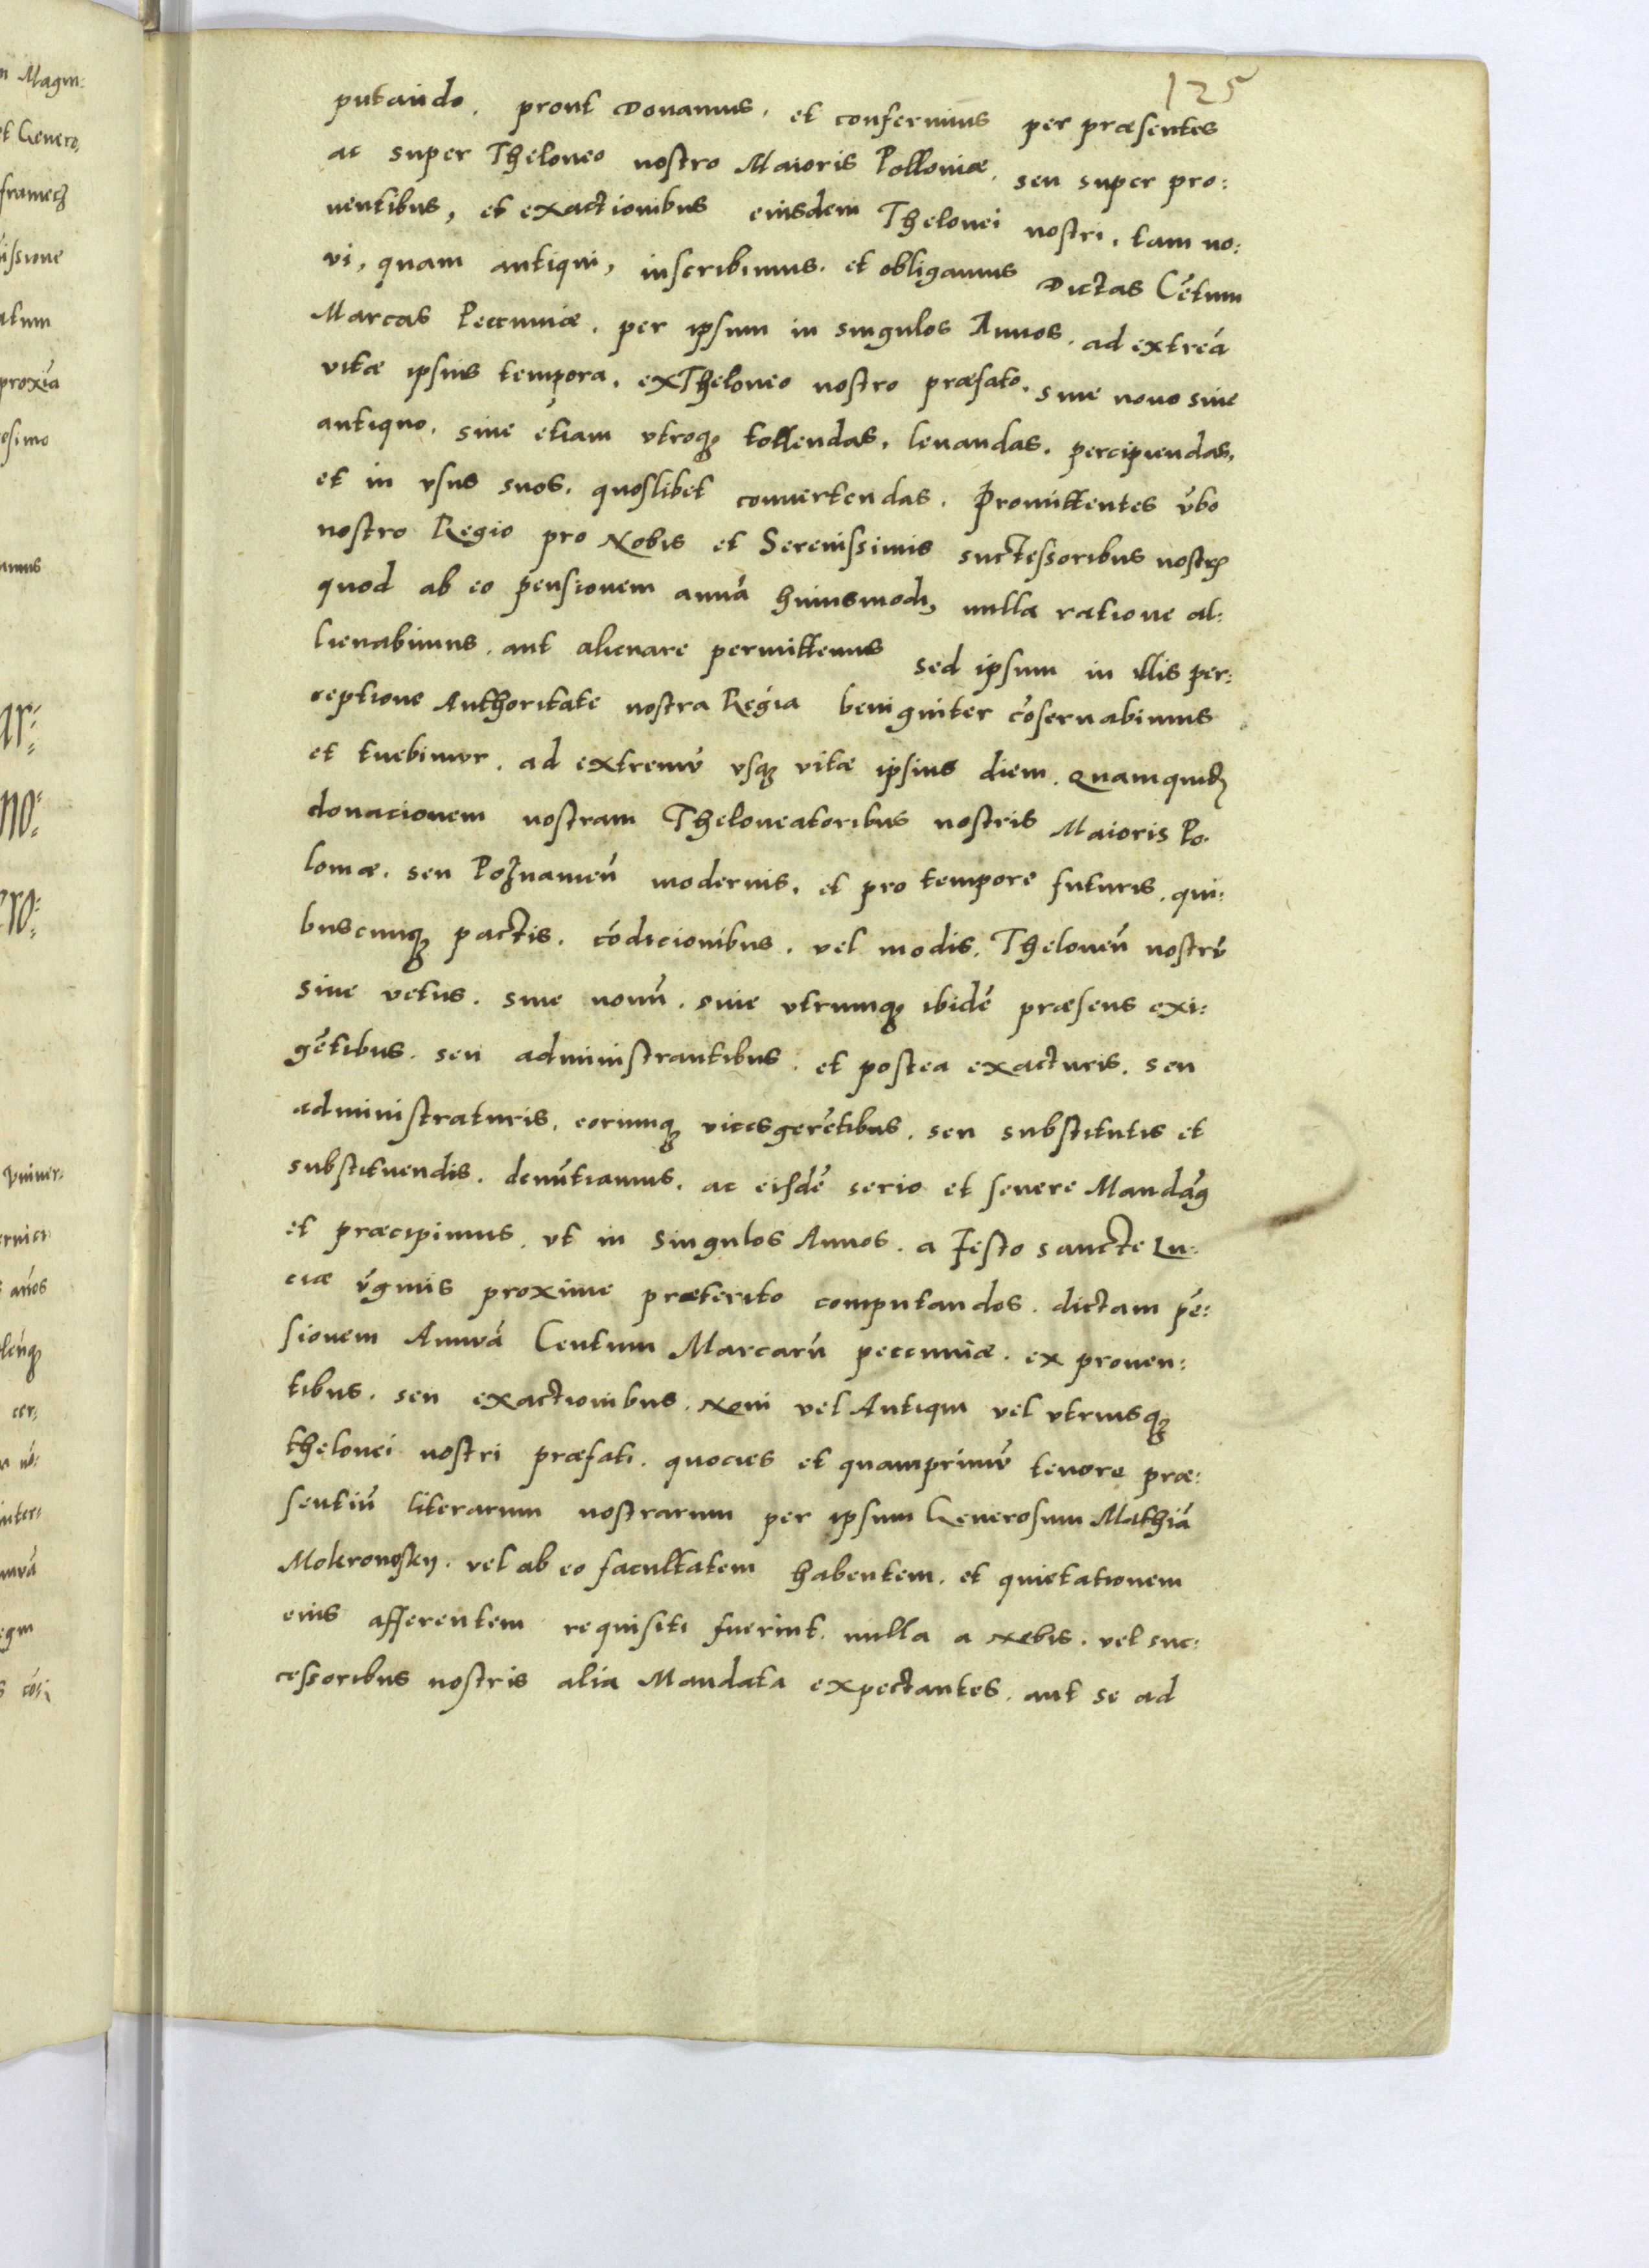 125
putando. prout Donamus. et conferimus per præsentes
ac super Theloneo nostro Maioris Polloniæ. seu super pro:
uentibus, et exactionibus eiusdem Thelonei nostri, tam no:
vi, quam antiqui, inscribimus. et obligamus Dictas Cētum
Marcas Peccuniæ. per ipsum in singulos Annos. ad extreā
vitæ ipsius tempora. ex Theloneo nostro præfato. siue nouo siue
antiquo. siue etiam vtroq₃ tollendas, leuandas. percipiendas,
et in vsus suos. quoslibet conuertendas. Promittentes v̄bo
nostro Regio pro Nobis et Serenissimis suctessoribus nostr̄
quod ab eo pensionem annuā huiusmodi, nulla ratione al:
lienabimus. aut alienare permittemus sed ipsum in illis per:
ceptione Authoritate nostra Regia benigniter cōseruabimus
et tuebimur. ad extremū vsq₃ vitæ ipsius diem. Quamquid̄
donacionem nostram Theloneatoribus nostris Maioris Po.
loniæ. seu Poznanień modernis, et pro tempore futuris. qui:
buscumq₃ pactis. cōdicionibus. vel modis. Theloneū nostrū
siue vetus. siue nouū. siue vtrumq₃ ibidē præsens exi:
gētibus. seu administrantibus. et postea exacturis. seu
administraturis, eorumq₃ vicesgerētibus. seu substitutis et
substituendis. denūtiamus. ac eisdē serio et seuere Mandām9
et præcipimus. vt in singulos Annos. a Festo sancte Lu:
ciæ v̄ginis proxime præterito computandos. dictam pē:
sionem Annuā Centum Marcarū peccuniæ. ex prouen:
tibus. seu exactionibus. Noui vel Antiqui vel vtriusq₃
thelonei nostri præfati. quocies et quamprimū tenore præ:
sentiū literarum nostrarum per ipsum Generosum Mathiā
Mokronosky. vel ab eo facultatem habentem. et quietationem
eius afferentem requisiti fuerint. nulla a Nobis. vel suc:
cessoribus nostris alia Mandata expectantes. aut se ad